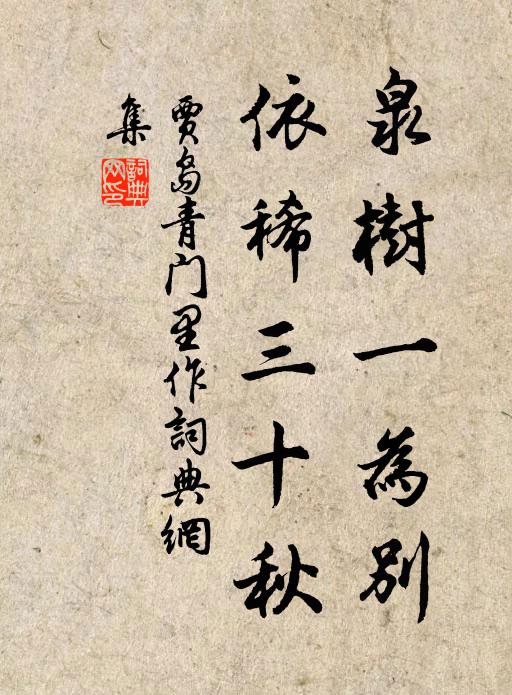 泉樹一為別
依稀三十秋
賈島青门里作詞典網
集
詞典
网印